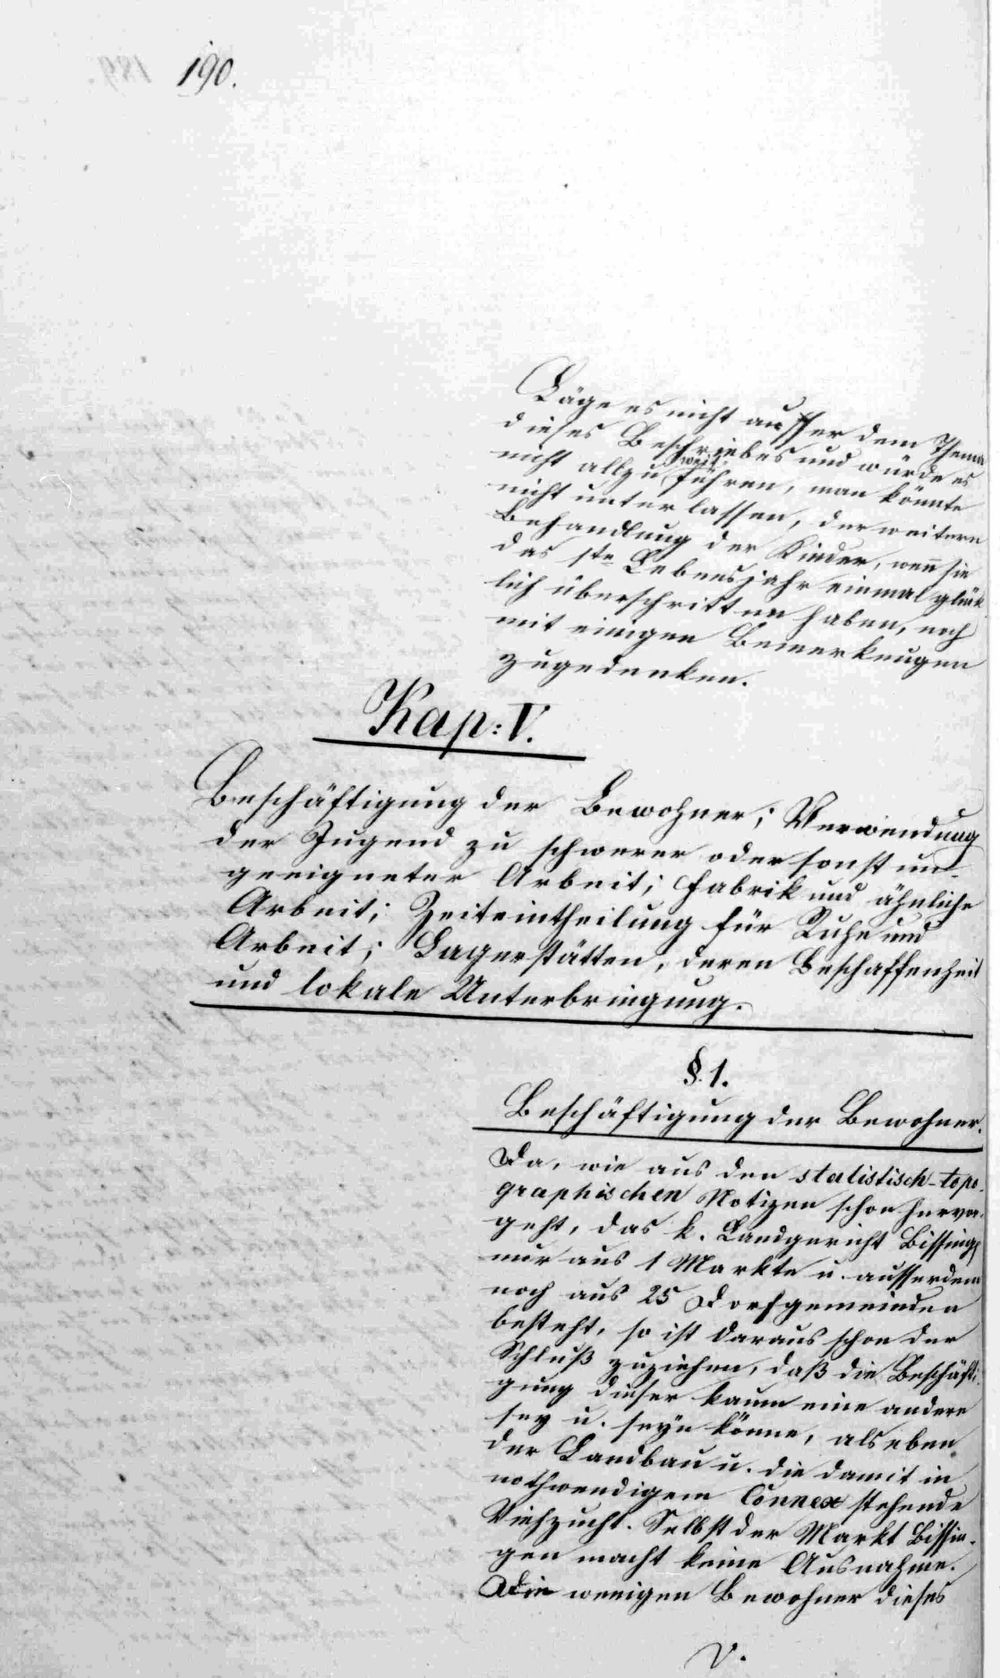 190.
Läge es nicht ausser dem Thema
dieses Beschriebes und würde es
nicht allzu weit führen, man könnte
nicht unterlassen, der weitern
Behandlung der Kinder, wenn sie
das 1te Lebensjahr einmal glük-
lich überschritten haben, noch
mit einigen Bemerkungen
zugedenken.
Kap: V.
Beschäftigung der Bewohner; Verwendung
der Jugend zu schwerer oder sonst un-
geeigneter Arbeit; Fabrik und ähnliche
Arbeit; Zeiteintheilung für Ruhe und
Arbeit; Lagerstätten, deren Beschaffenheit
und lokale Unterbringung.
§. 1.
Beschäftigung der Bewohner.
Da, wie aus den statistisch-topo-
graphischen Notizen schon hervor-
geht, das k. Landgericht Bissingen
nur aus 1 Markte u. ausserdem
noch aus 25 Dorfgemeinden
besteht, so ist daraus schon der
Schluß zuziehen, daß die Beschäfti-
gung dieser kaum eine andere
sey u. seyn könne, als eben
der Landbau u. die damit in
nothwendigem Connex stehende
Viehzucht. Selbst der Markt Bissin-
gen macht keine Ausnahme.
Die wenigen Bewohner dieses